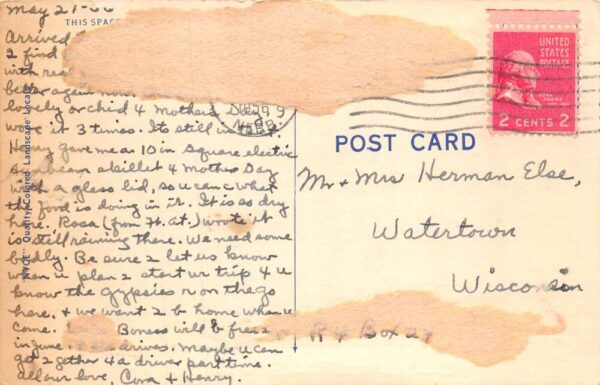 May 21-
THIS SPACE
Arrived
2 find
with
better again now
lovely orchid 4 Mothers Day
wore it 3 times. Its still
Henry gave me a 10 in square electric
Sunbeam skillet 4 Mothers Day
with a glass lid, so u can c what
the food is doing in it. It is so dry
here. Rosa (from Ft. At.) wrote it
is still raining there. We need some
badly. Be sure 2 let us know
when u plan 2 start ur trip 4 u
know the gypsies r on the go
here. + we want 2 b home when u
come. Boness will b free 2
in June. drives. Maybe u can
get 2gether 4 a driver part time.
all our love, Cora + Henry.
"NYCE" Quality Colored Landscape Locals
UNITED
STATES
POSTAGE
2 CENTS 2
NEBR.
POST CARD
Mr + Mrs Herman Else,
Watertown
Wisconsin
R 4 Box 29